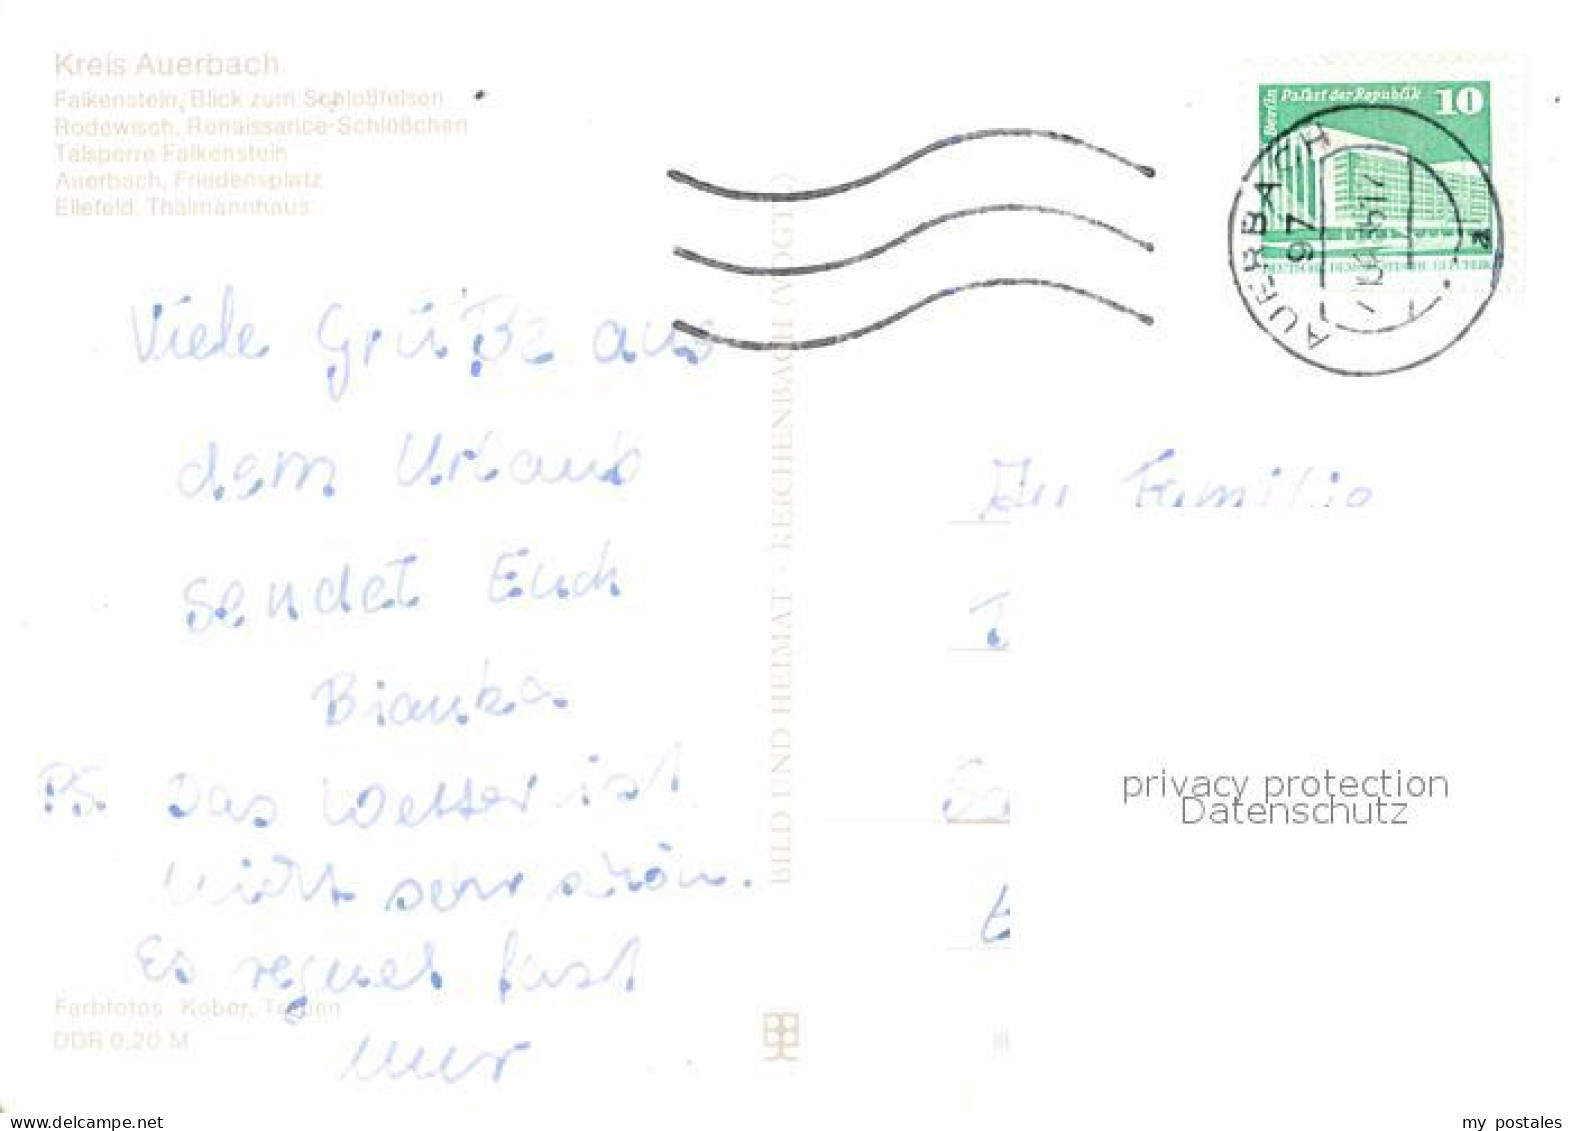 Kreis Auerbach
Falkenstein, Blick zum Schloßfelsen
Rodewisch, Renaissance-Schlößchen
Talsperre Falkenstein
Auerbach, Friedensplatz
Ellefeld, Thälmannhaus
Berlin Palast der Republik 10
AUERBACH
97
Viele Grüße aus
dem Urlaub
sendet Euch
Bianka
PS. Das Wetter ist
nicht sehr schön.
Es regnet fast
nur
Farbfotos: Kober,
DDR 0,20 M
BILD UND HEIMAT · REICHENBACH (VOGTL)
An Familie
privacy protection
Datenschutz
www.delcampe.net
my_postales